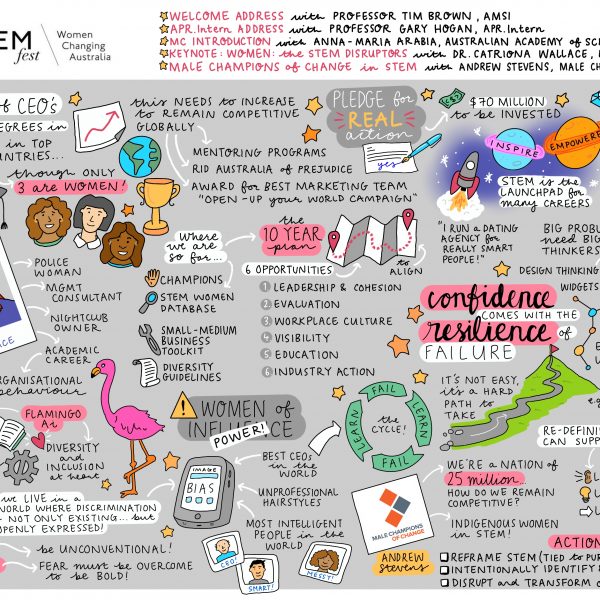 EM
fest
Women
Changing
Australia
WELCOME ADDRESS with PROFESSOR TIM BROWN, AMSI
APR.Intern ADDRESS with PROFESSOR GARY HOGAN, APR.Intern
MC INTRODUCTION with ANNA-MARIA ARABIA, AUSTRALIAN ACADEMY of SC
KEYNOTE: WOMEN: the STEM DISRUPTORS with DR. CATRIONA WALLACE,
MALE CHAMPIONS of CHANGE in STEM with ANDREW STEVENS, MALE CH
of CEO's
EGREES in
in TOP
though only
3 are WOMEN!
this NEEDS to INCREASE
to REMAIN COMPETITIVE
GLOBALLY
MENTORING PROGRAMS
RID AUSTRALIA of PREJUDICE
AWARD for BEST MARKETING TEAM
"OPEN-UP your WORLD CAMPAIGN"
PLEDGE for
REAL
action
yes
$70 MILLION
to be INVESTED
INSPIRE
EMPOWERE
STEM is the
LAUNCHPAD for
many CAREERS
"I RUN a DATING
AGENCY for
REALLY SMART
PEOPLE!"
BIG PROBL
need BIG
THINKERS
DESIGN THINKING
WIDGETS
POLICE
WOMAN
MGMT
CONSULTANT
NIGHTCLUB
OWNER
ACADEMIC
CAREER
ORGANISATIONAL
behaviour
Where
we are
so far...
CHAMPIONS
STEM WOMEN
DATABASE
SMALL-MEDIUM
BUSINESS
TOOLKIT
DIVERSITY
GUIDELINES
the
10 YEAR
plan
to
ALIGN
6 OPPORTUNITIES
1 LEADERSHIP & COHESION
2 EVALUATION
3 WORKPLACE CULTURE
4 VISIBILITY
5 EDUCATION
6 INDUSTRY ACTION
confidence
COMES with THE
resilience of
FAILURE
IT'S NOT EASY,
it's a HARD
PATH to
TAKE
RE-DEFINI
CAN SUPP
FLAMINGO
Ai
DIVERSITY
and
INCLUSION
at heart
WOMEN of
INFLUENCE
POWER!
IMAGE
BIAS
BEST CEOs
in the
WORLD
UNPROFESSIONAL
HAIRSTYLES
MOST INTELLIGENT
PEOPLE in the
WORLD
CEO!
SMART!
MESSY!
FAIL
LEARN
FAIL
LEARN
the
CYCLE!
MALE CHAMPIONS
OF CHANGE
ANDREW
Stevens
WE'RE a NATION of
25 million.
HOW DO WE REMAIN
COMPETITIVE?
INDIGENOUS WOMEN
in STEM!
we LIVE in a
WORLD WHERE DISCRIMINATION
NOT ONLY EXISTING... but
OPENLY EXPRESSED!
be UNCONVENTIONAL!
FEAR must be OVERCOME
to be BOLD!
ACTION
REFRAME STEM (TIED to PUR
INTENTIONALLY IDENTIFY &
DISRUPT and TRANSFORM